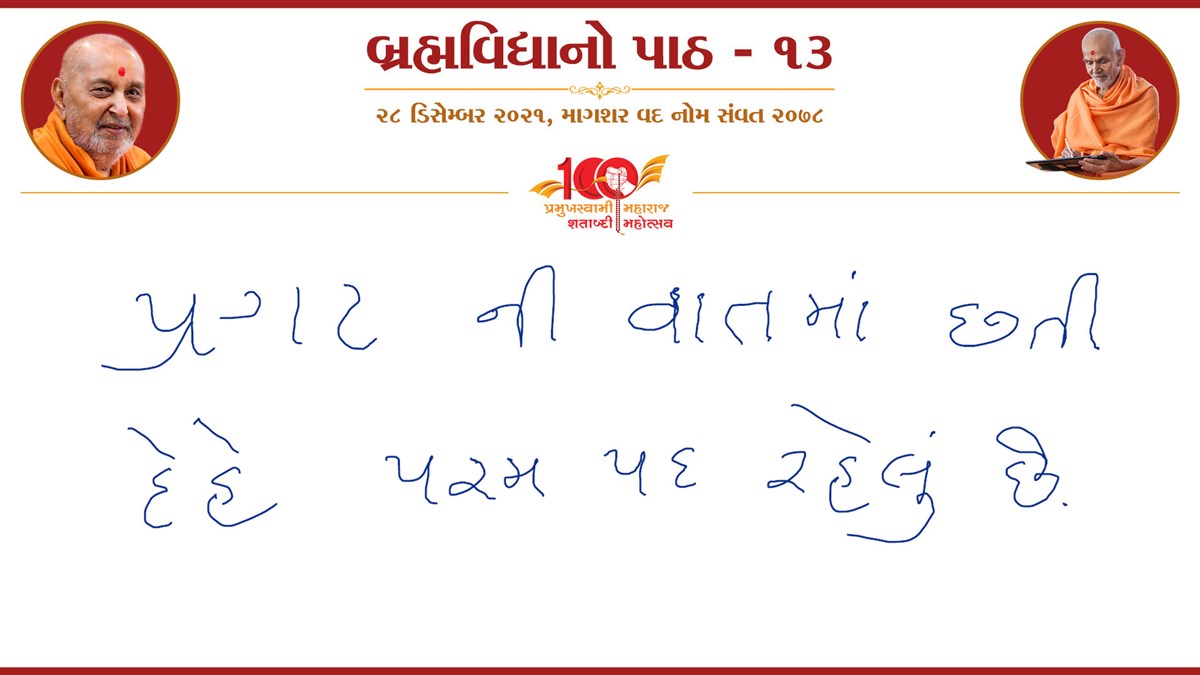 બ્રહ્મવિદ્યાનો પાઠ - ૧૩
૨૮ ડિસેમ્બર ૨૦૨૧, માગશર વદ નોમ સંવત ૨૦૭૮
100
પ્રમુખસ્વામી મહારાજ
શતાબ્દી મહોત્સવ
પ્રગટ ની વાતમાં છતી
દેહે પરમ પદ રહેલું છે.